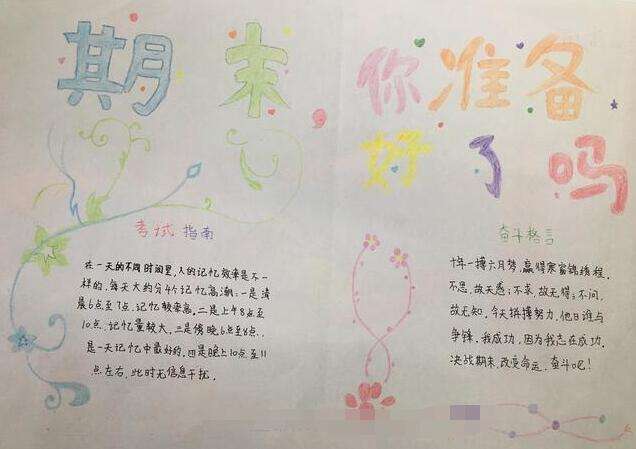 期末
你准备
好了吗
考试指南
在一天的不同时间里,人的记忆效率是不一
样的,每天大约分4个记忆高潮:一是清
晨6点至7点,记忆效率高,二是上午8点至
10点,记忆量较大,三是傍晚6点至8点,
是一天记忆中最好的,四是晚上10点至11
点左右,此时无信息干扰。
奋斗格言
十年一搏六月梦,赢得寒窗锦绣程。
不思,故无惑;不求,故无得;不问,
故无知。今天拼搏努力,他日谁与
争锋。我成功,因为我志在成功。
决战期末,改变命运,奋斗吧!